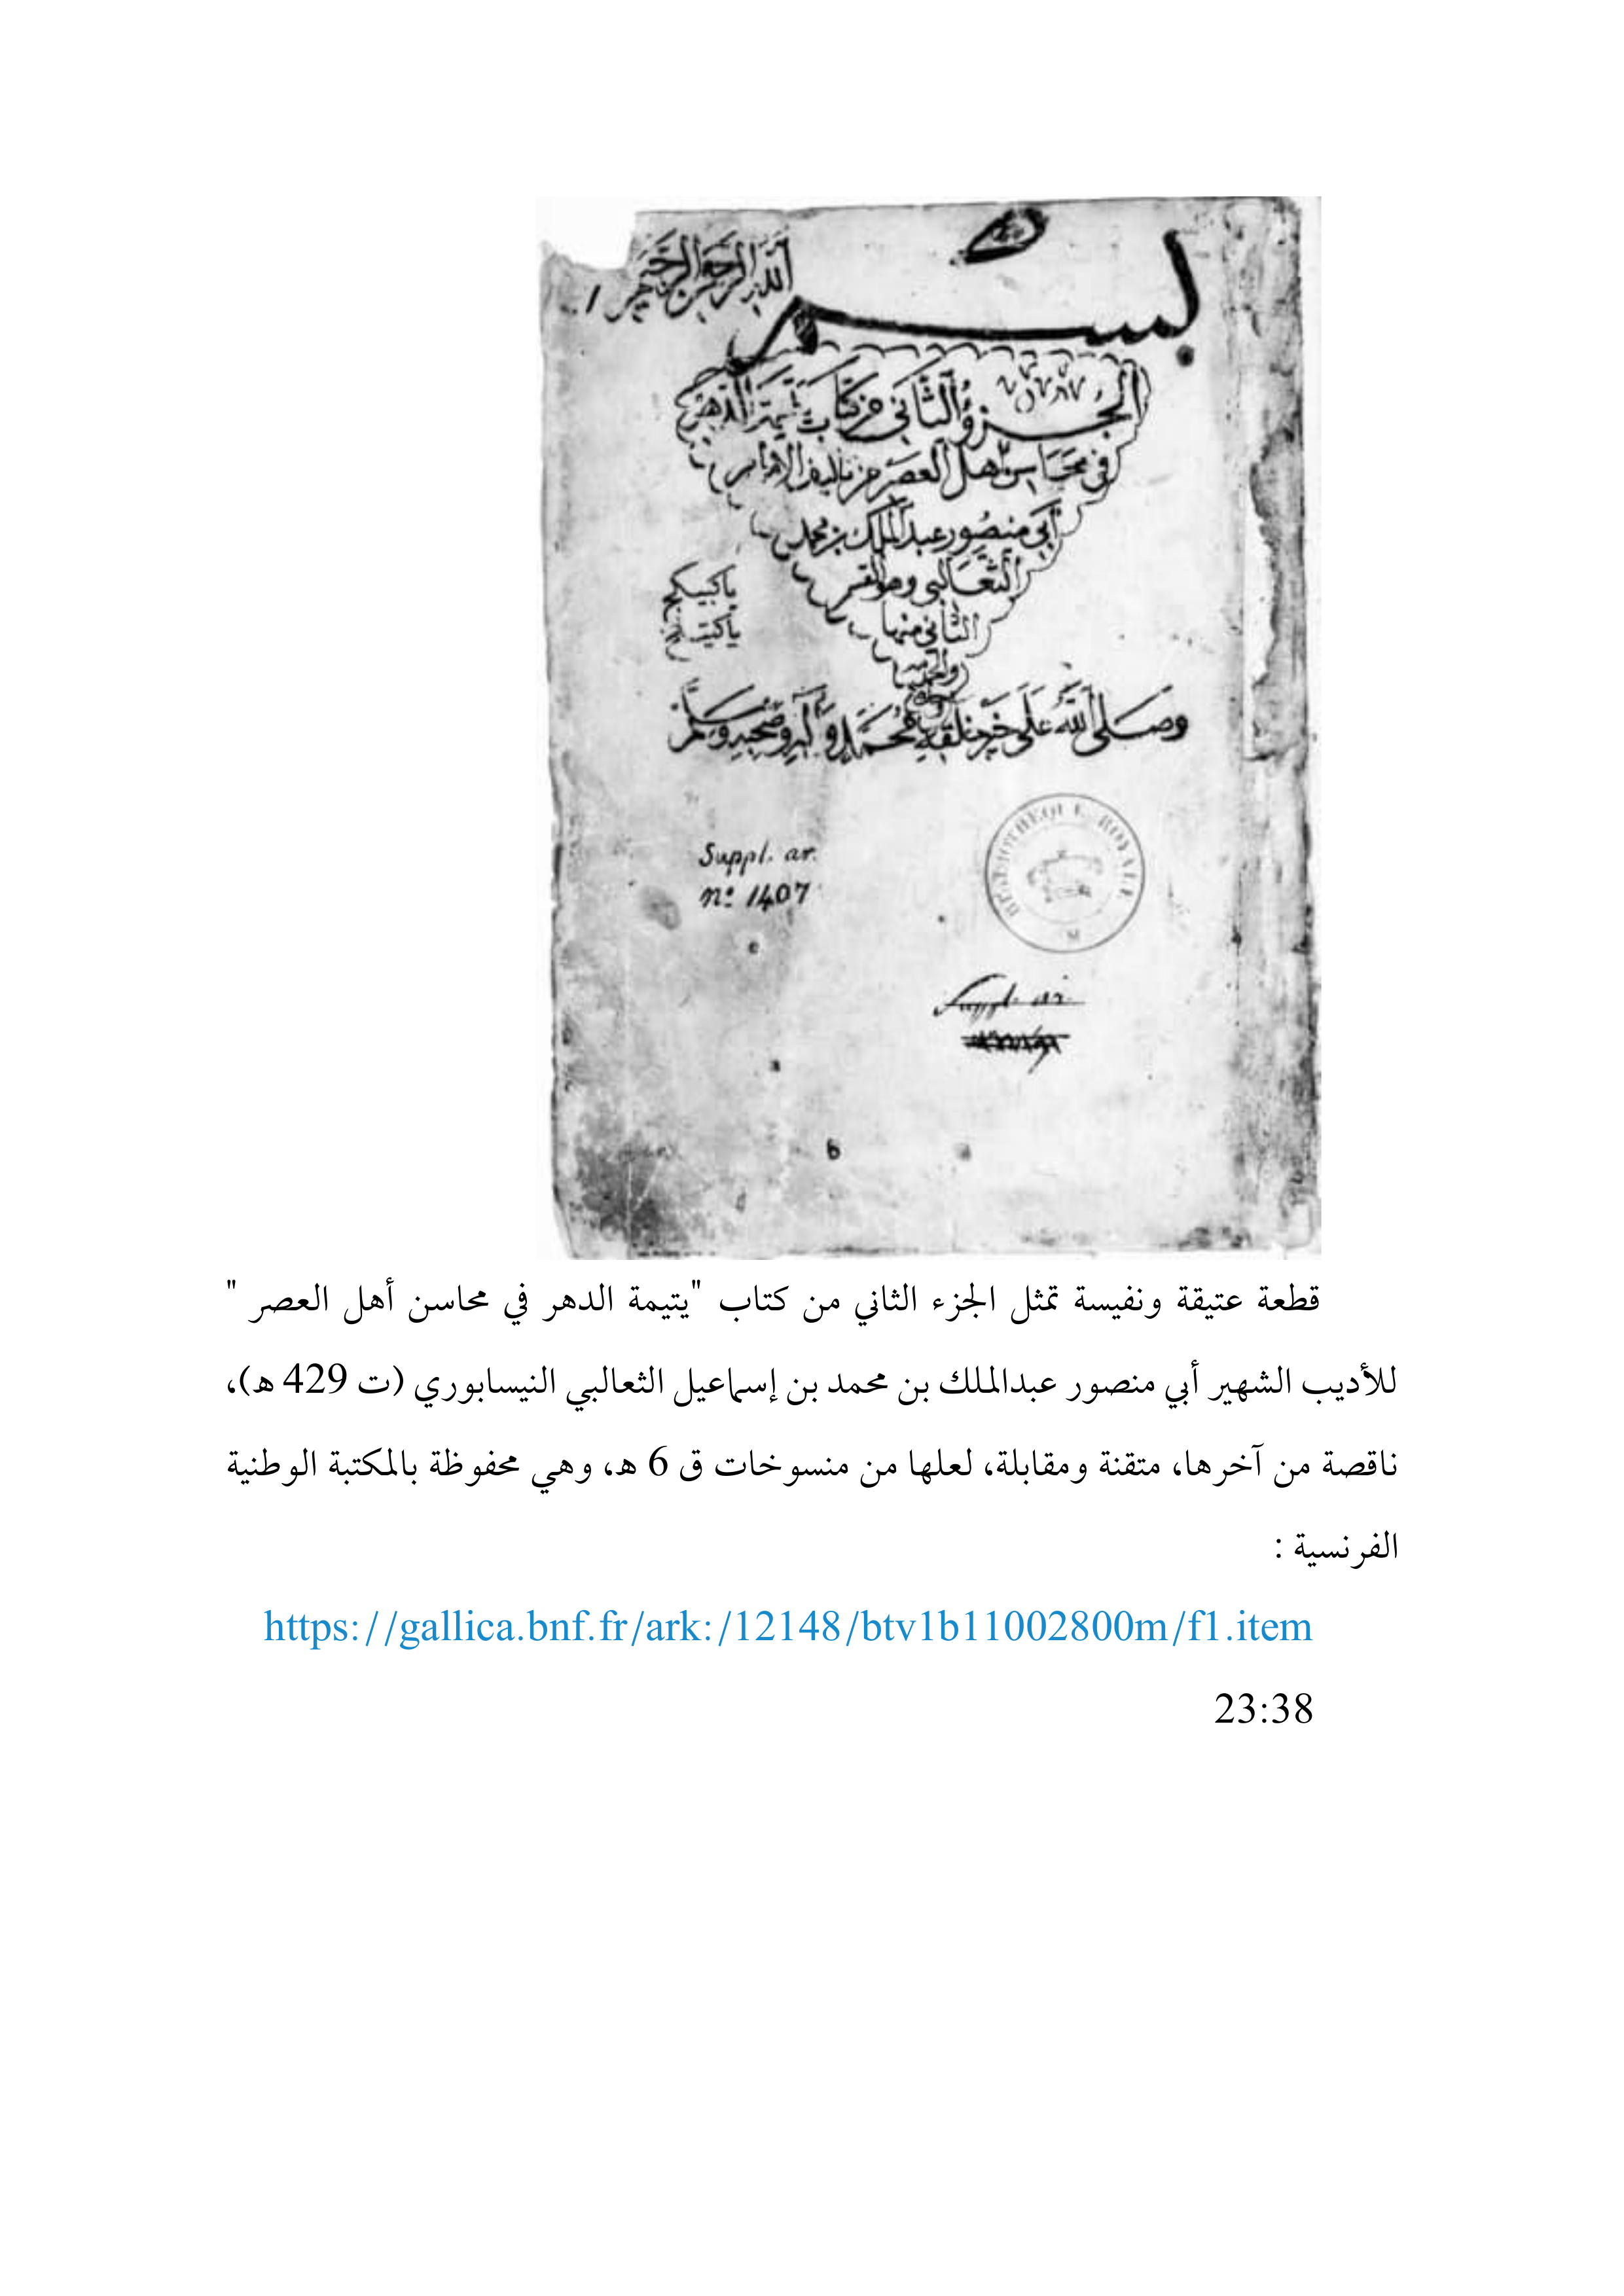 بسم
الله الرحمن الرحيم
الجزؤ الثاني من كتاب يتيمة الدهر
في محاسن اهل العصر من تاليف الامام
أبي منصور عبد الملك بن محمد
الثعالبي وهو القسم
الثاني منها
ياكبيكج
وصلى الله على خير خلقه محمد وآله وصحبه وسلم
BIBLIOTHEQUE ROYALE
Suppl. ar.
No. 1407
Suppl. ar.
قطعة عتيقة ونفيسة تمثل الجزء الثاني من كتاب "يتيمة الدهر في محاسن أهل العصر "
للأديب الشهير أبي منصور عبدالملك بن محمد بن إسماعيل الثعالبي النيسابوري (ت 429 هـ)،
ناقصة من آخرها، متقنة ومقابلة، لعلها من منسوخات ق 6 هـ، وهي محفوظة بالمكتبة الوطنية
الفرنسية :
https://gallica.bnf.fr/ark:/12148/btv1b11002800m/f1.item
23:38